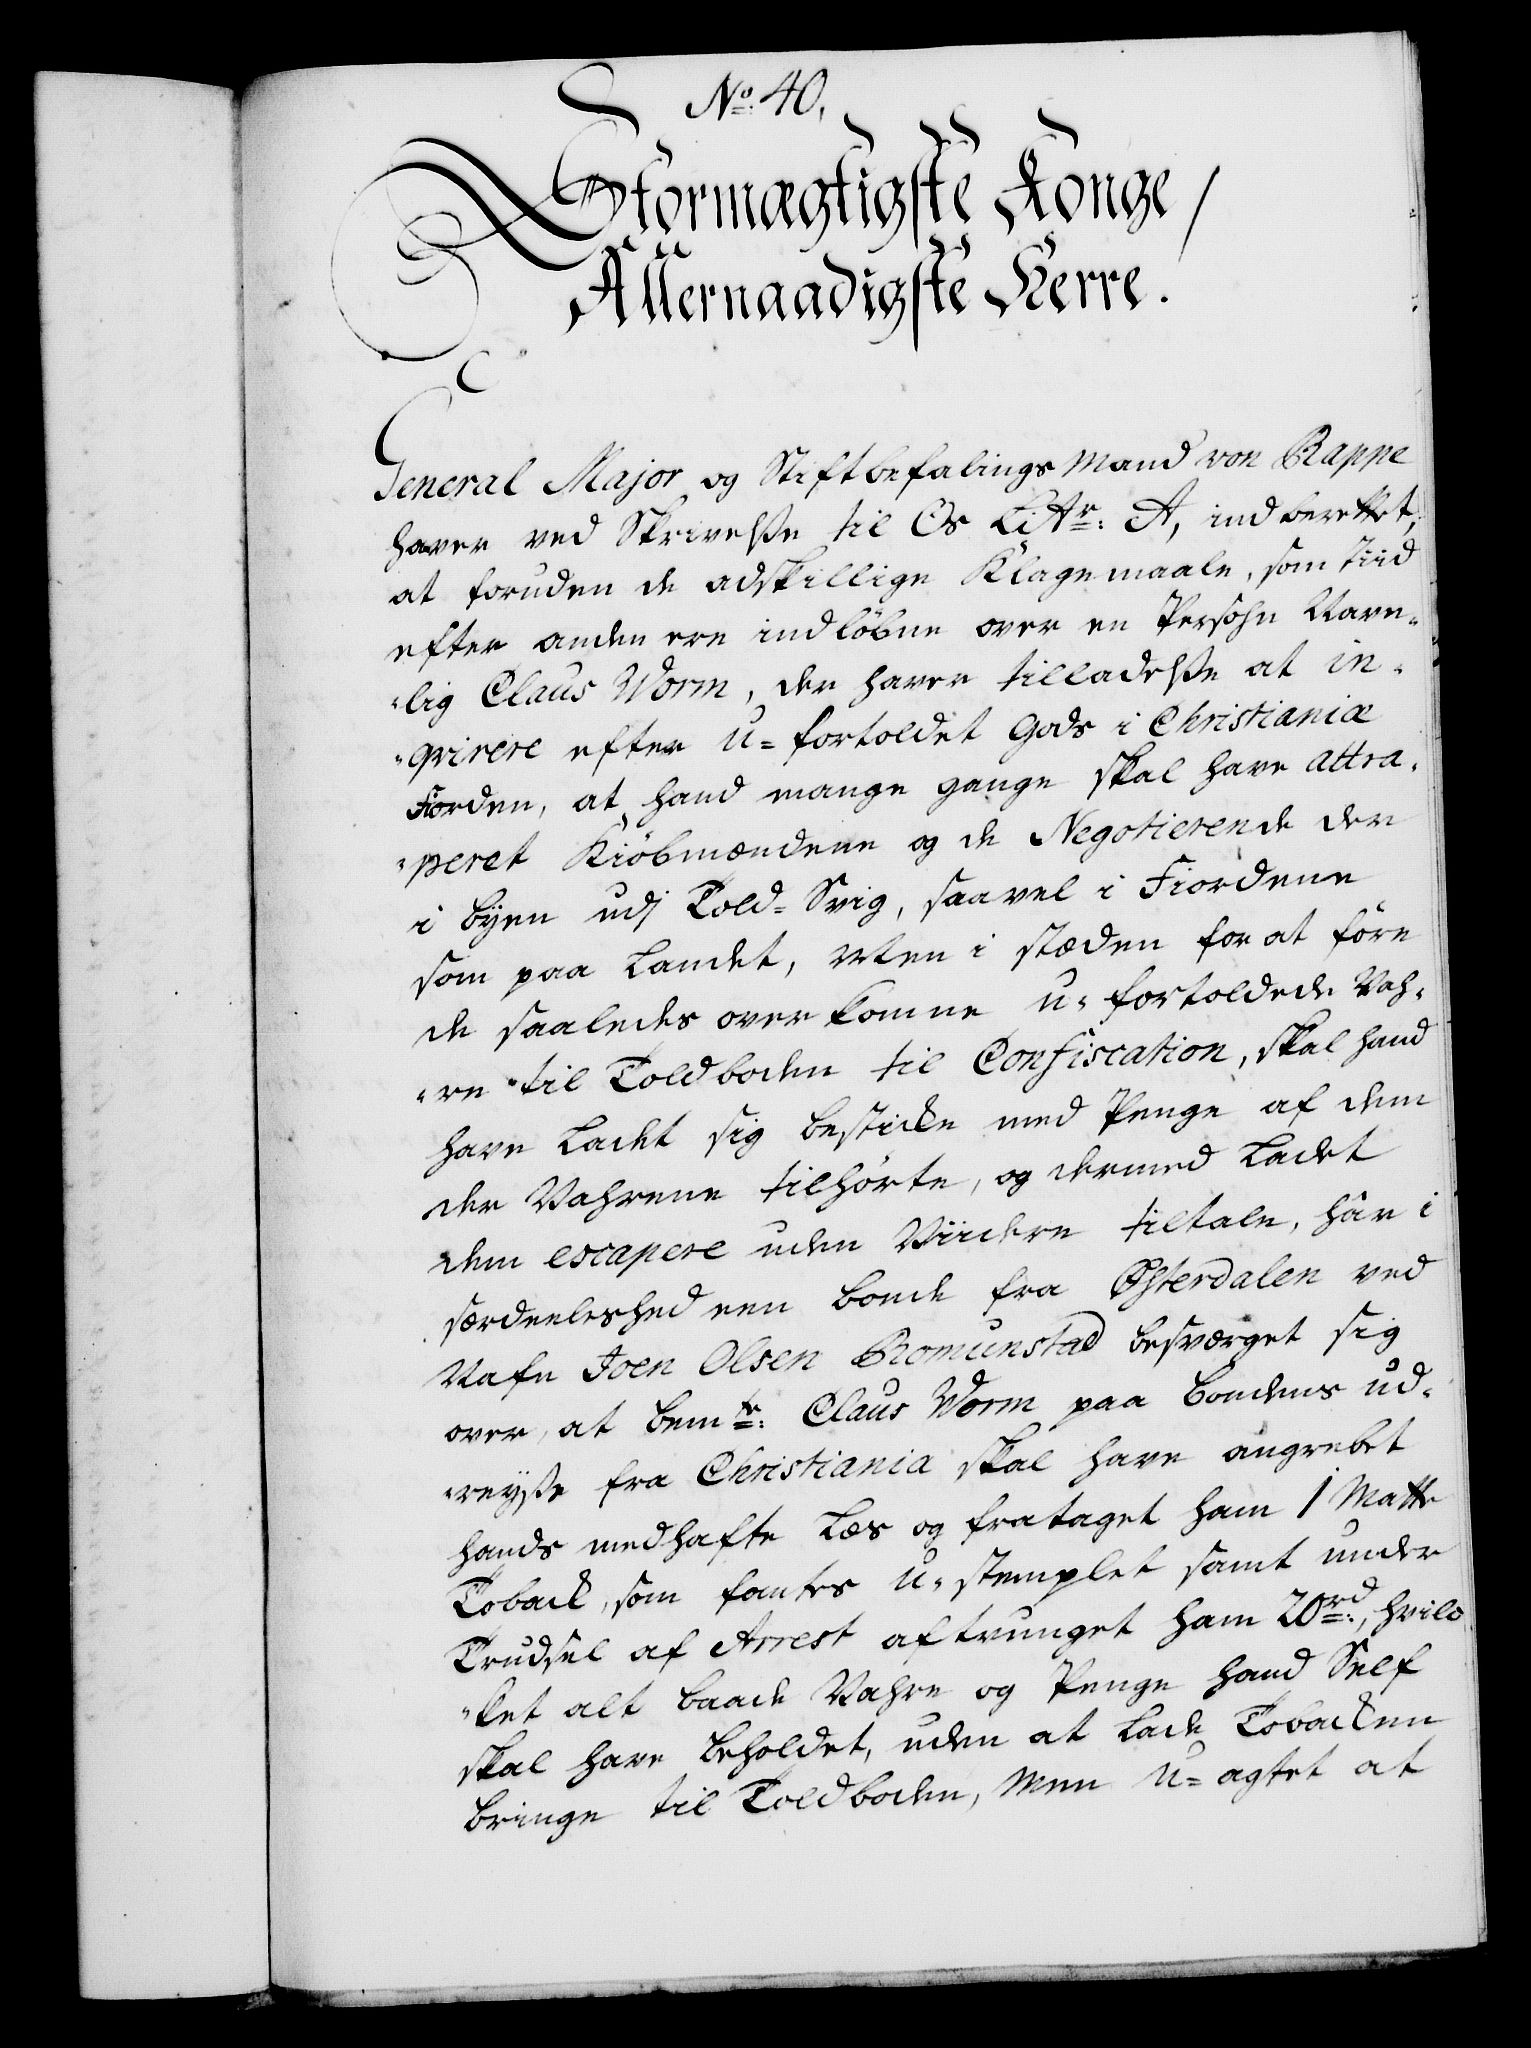 No: 40,
Stormægtigste Konge /
Allernaadigste Herre.
General Major og Stiftbefalings Mand von Rappe
haver ved Skrivelße til Os Litr: A, indberettet,
at foruden de adskillige Klagemaale, som Tiid
efter anden ere indløbne over en Persohn Navn-
-lig Claus Worm, der haver tilladelße at in-
-qvirere efter u-fortoldet Gods i Christianiæ
Fiorden, at hand mange gange skal have attra-
-peret Kiøbmændene og de Negotierende der
i Byen udj Told-Svig, saavel i Fiordene
som paa Landet, Men i stæden for at føre
de saaledes overkomne u-fortoldede Vah-
-re til Toldboden til Confiscation, skal hand
have Ladet sig besticke med Penge af dem
der Vahrene tilhørte, og dermed Ladet
dem escapere uden Viidere tiltale, har i
særdeeleshed een Bonde fra Østerdalen ved
Nafn Joen Olsen Romunstad besværget sig
over, at bemte: Claus Worm paa Bondens ud-
-reyße fra Christiania skal have angrebet
hands medhafte Læs og frataget ham 1 Matte
Toback, som fantes u-stemplet samt under
Trudsel af Arrest aftvunget ham 20rd:, hvil-
-ket alt baade Vahre og Penge hand Self
skal have beholdet, uden at lade Tobacken
bringe til Toldboden, Men u-agtet at